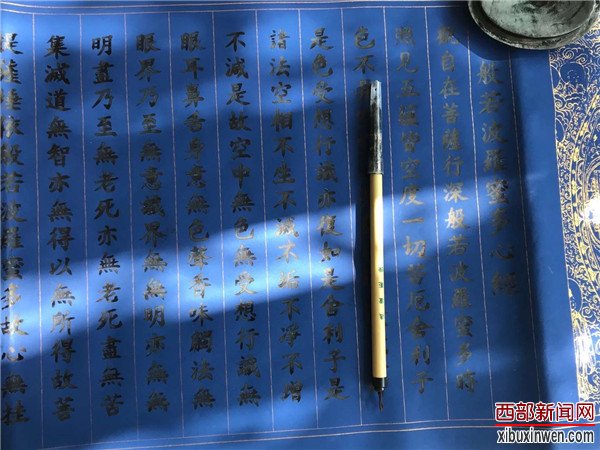 般若波羅蜜多心經
觀自在菩薩行深般若波羅蜜多時
照見五蘊皆空度一切苦厄舍利子
色不
是色受想行識亦復如是舍利子是
諸法空相不生不滅不垢不淨不增
不減是故空中無色無受想行識無
眼耳鼻舌身意無色聲香味觸法無
眼界乃至無意識界無無明亦無無
明盡乃至無老死亦無老死盡無苦
集滅道無智亦無得以無所得故菩
提薩埵依般若波羅蜜多故心無挂
西部新闻网
xibuxinwen.com